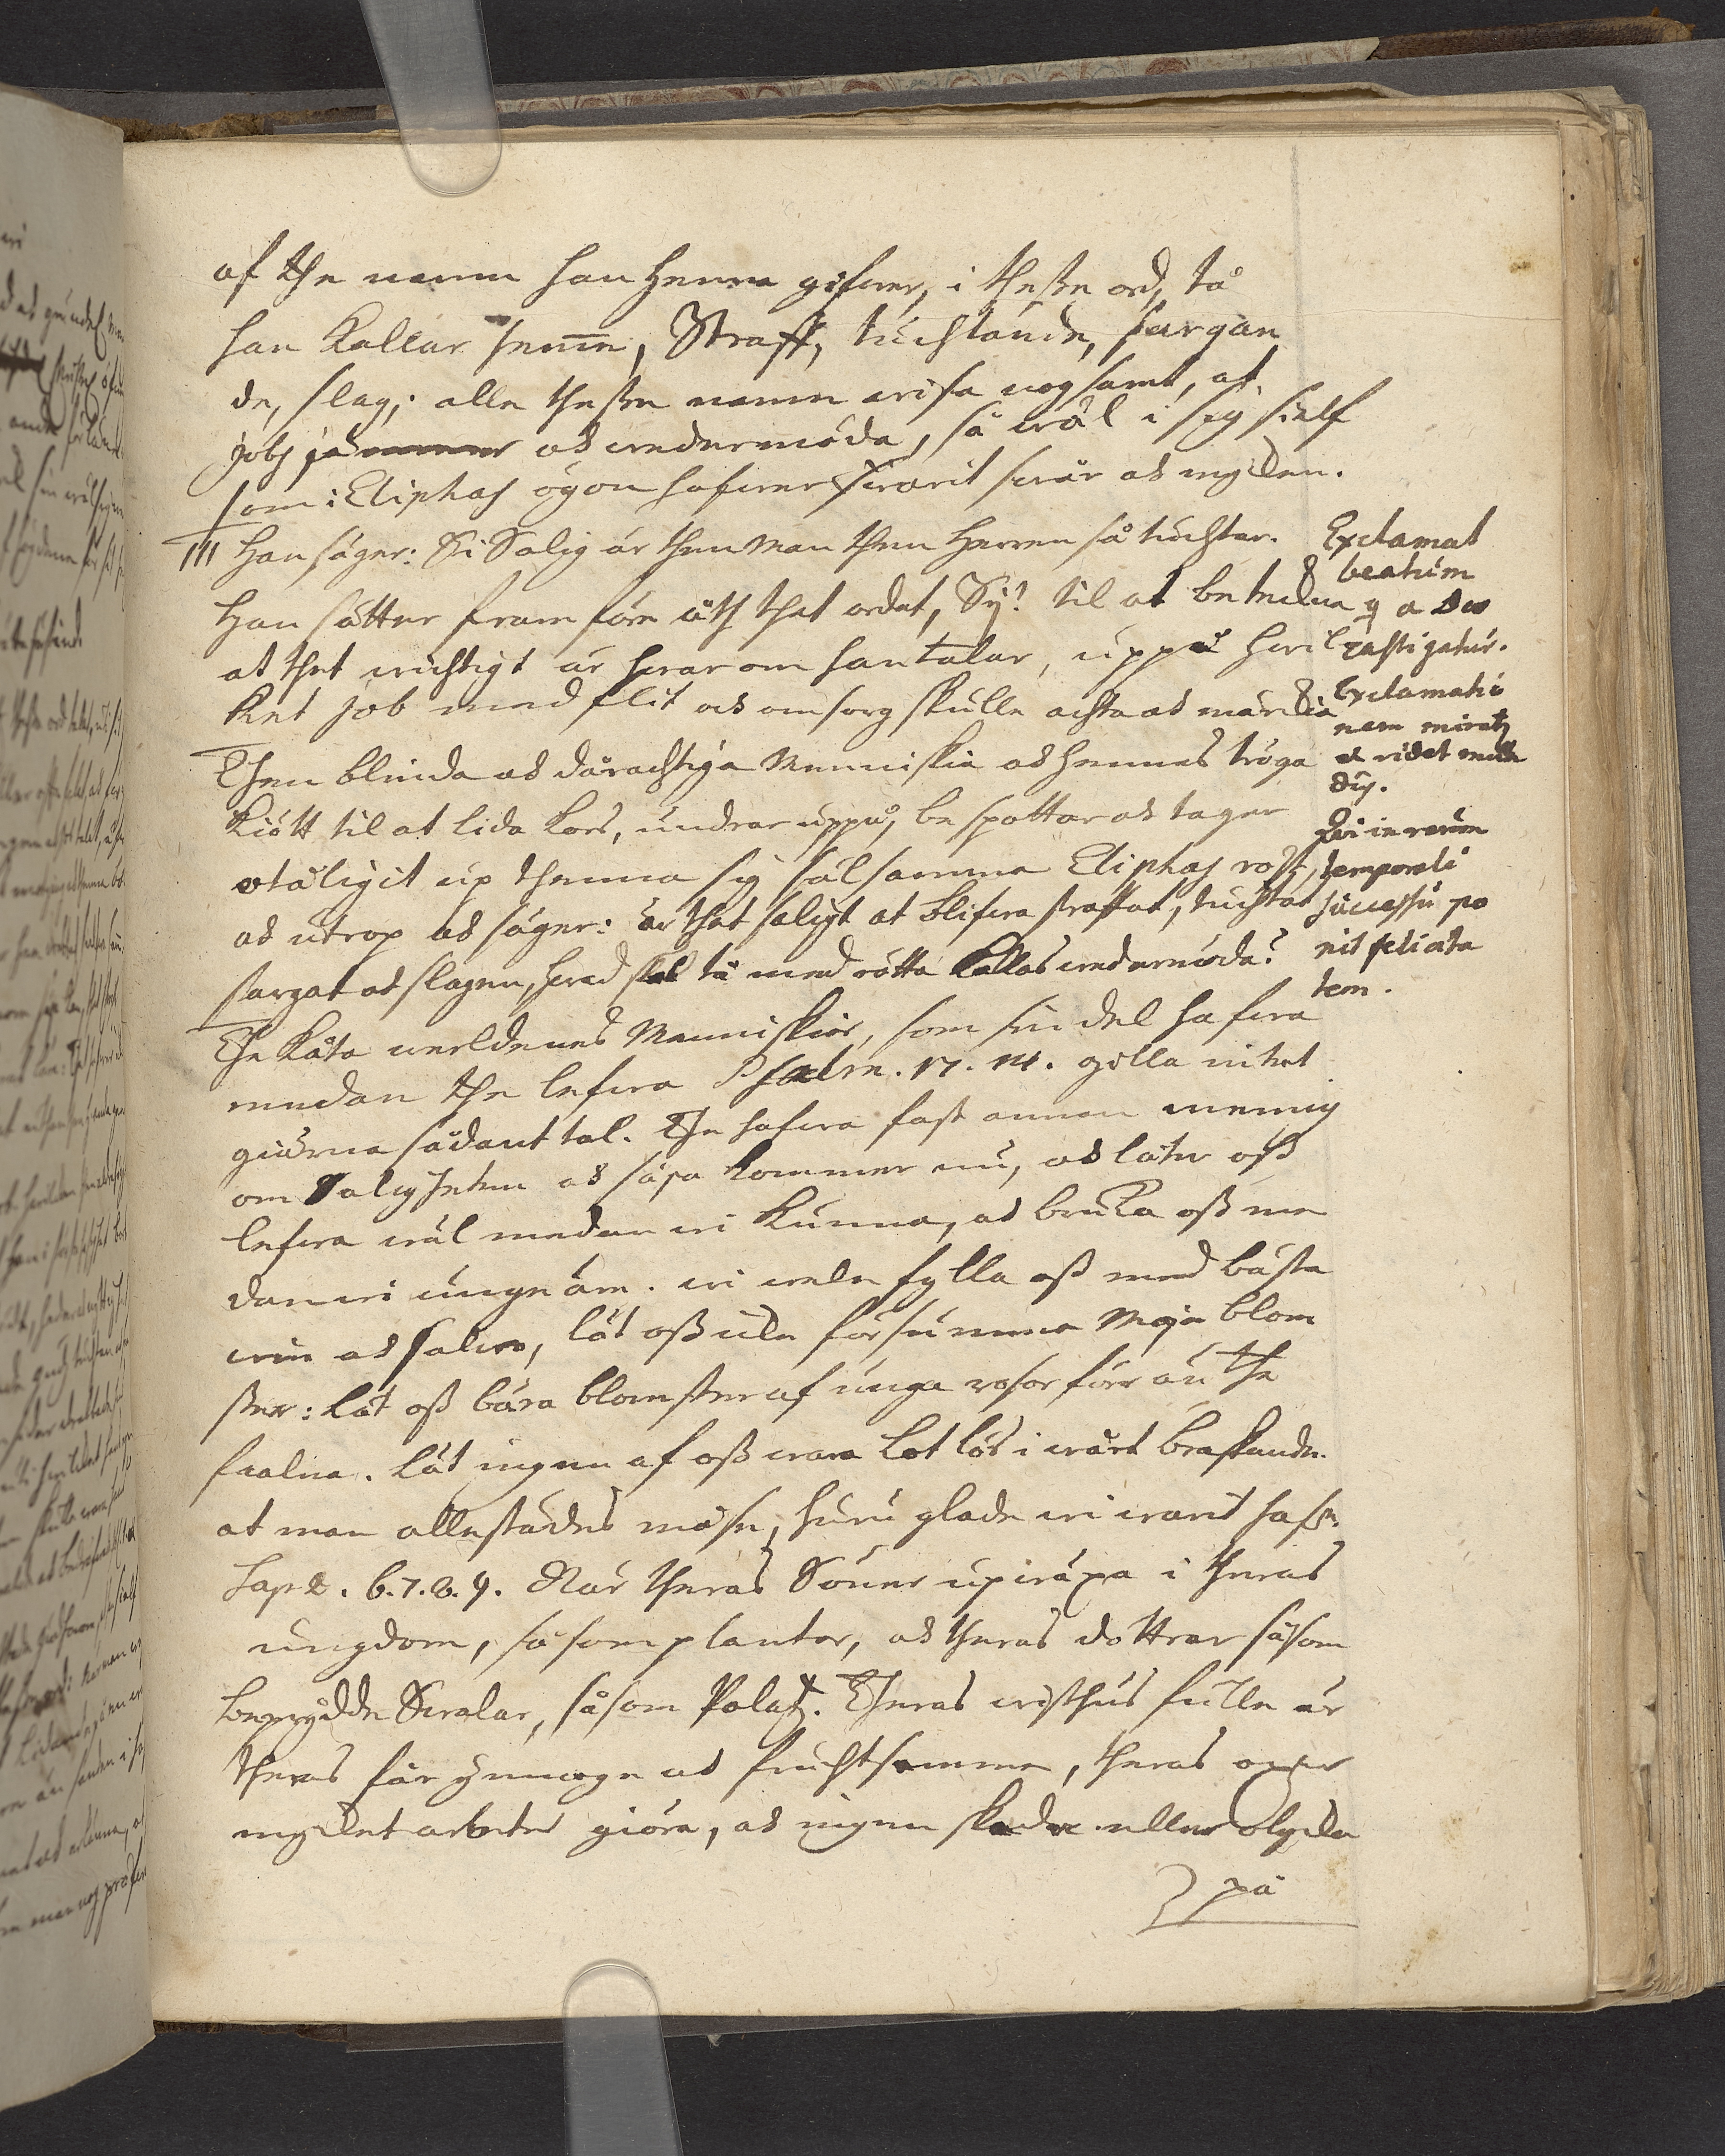 af the namn han henne gifwer, i theße ord, tå
han kallar henne, Straff, tuchtande, sargan
de, slag; alle theße namn wisa nogsamt, at
Jobs wedermöda, så wäl i sig sielf
som i Eliphas ögon hafwer warit swår och myken.
III Han säger: Si Salig är then Man then Herren så tuchtar.
Han sätter fram före åth thet ordet, Sij! til at betekna
at thet wichtigt är hwarom han talar, uppå hwil
ket Job med flit och omsorg skulle achta och märkia
Then blinda och dårachtiga Menniskia och hennes tröga
kiött til at lida kors, undrar uppå, bespottar och tager
otåligit up thenna sig sälsamma Eliphas rost,
och utrop och säger: är thet saligt at blifwa straffat, tuchtat
sargat och slagen, hwad skal tå med rätta kallas wedermöda?
The kåta werldenes Menniskior, som sin del hafwa
medan the lefwa Psalm. 17. 14. gilla intet
giärna sådant tal. The hafwa fast annan mening
om Saligheten och säga kommer nu, och låter oß
lefwa wäl medan wi kunna, och bruka oß me
dan wi unge äre. wi wele fylla oß med bästa
win och salwo, låt oß icke försumma Maje blom
ster: låt oß bära blomster af unga rosor förr än the
faalna. låt ingen af oß wara lotlös i wårt braskande.
at man allestädes må se, huru glade wi warit hafwe.
Sap 2. 6. 7. 8. 9. När theras Söner upwäxa i theras
ungdom, såsom plantor, och theras döttrar såsom
beprydde Swalar, såsom Palatz. Theras wisthus fulle är
theras får ymnoge och fruchtsamme, theras oxar
myket arbete giöra, och ingen skade eller olycka
på
Exclamat
beatum
q a Deo
castigatur.
Exclamatio
nem miratur
et ridet mun
dus.
Qui in rerum
temporali
successu po
nit felicita
tem.